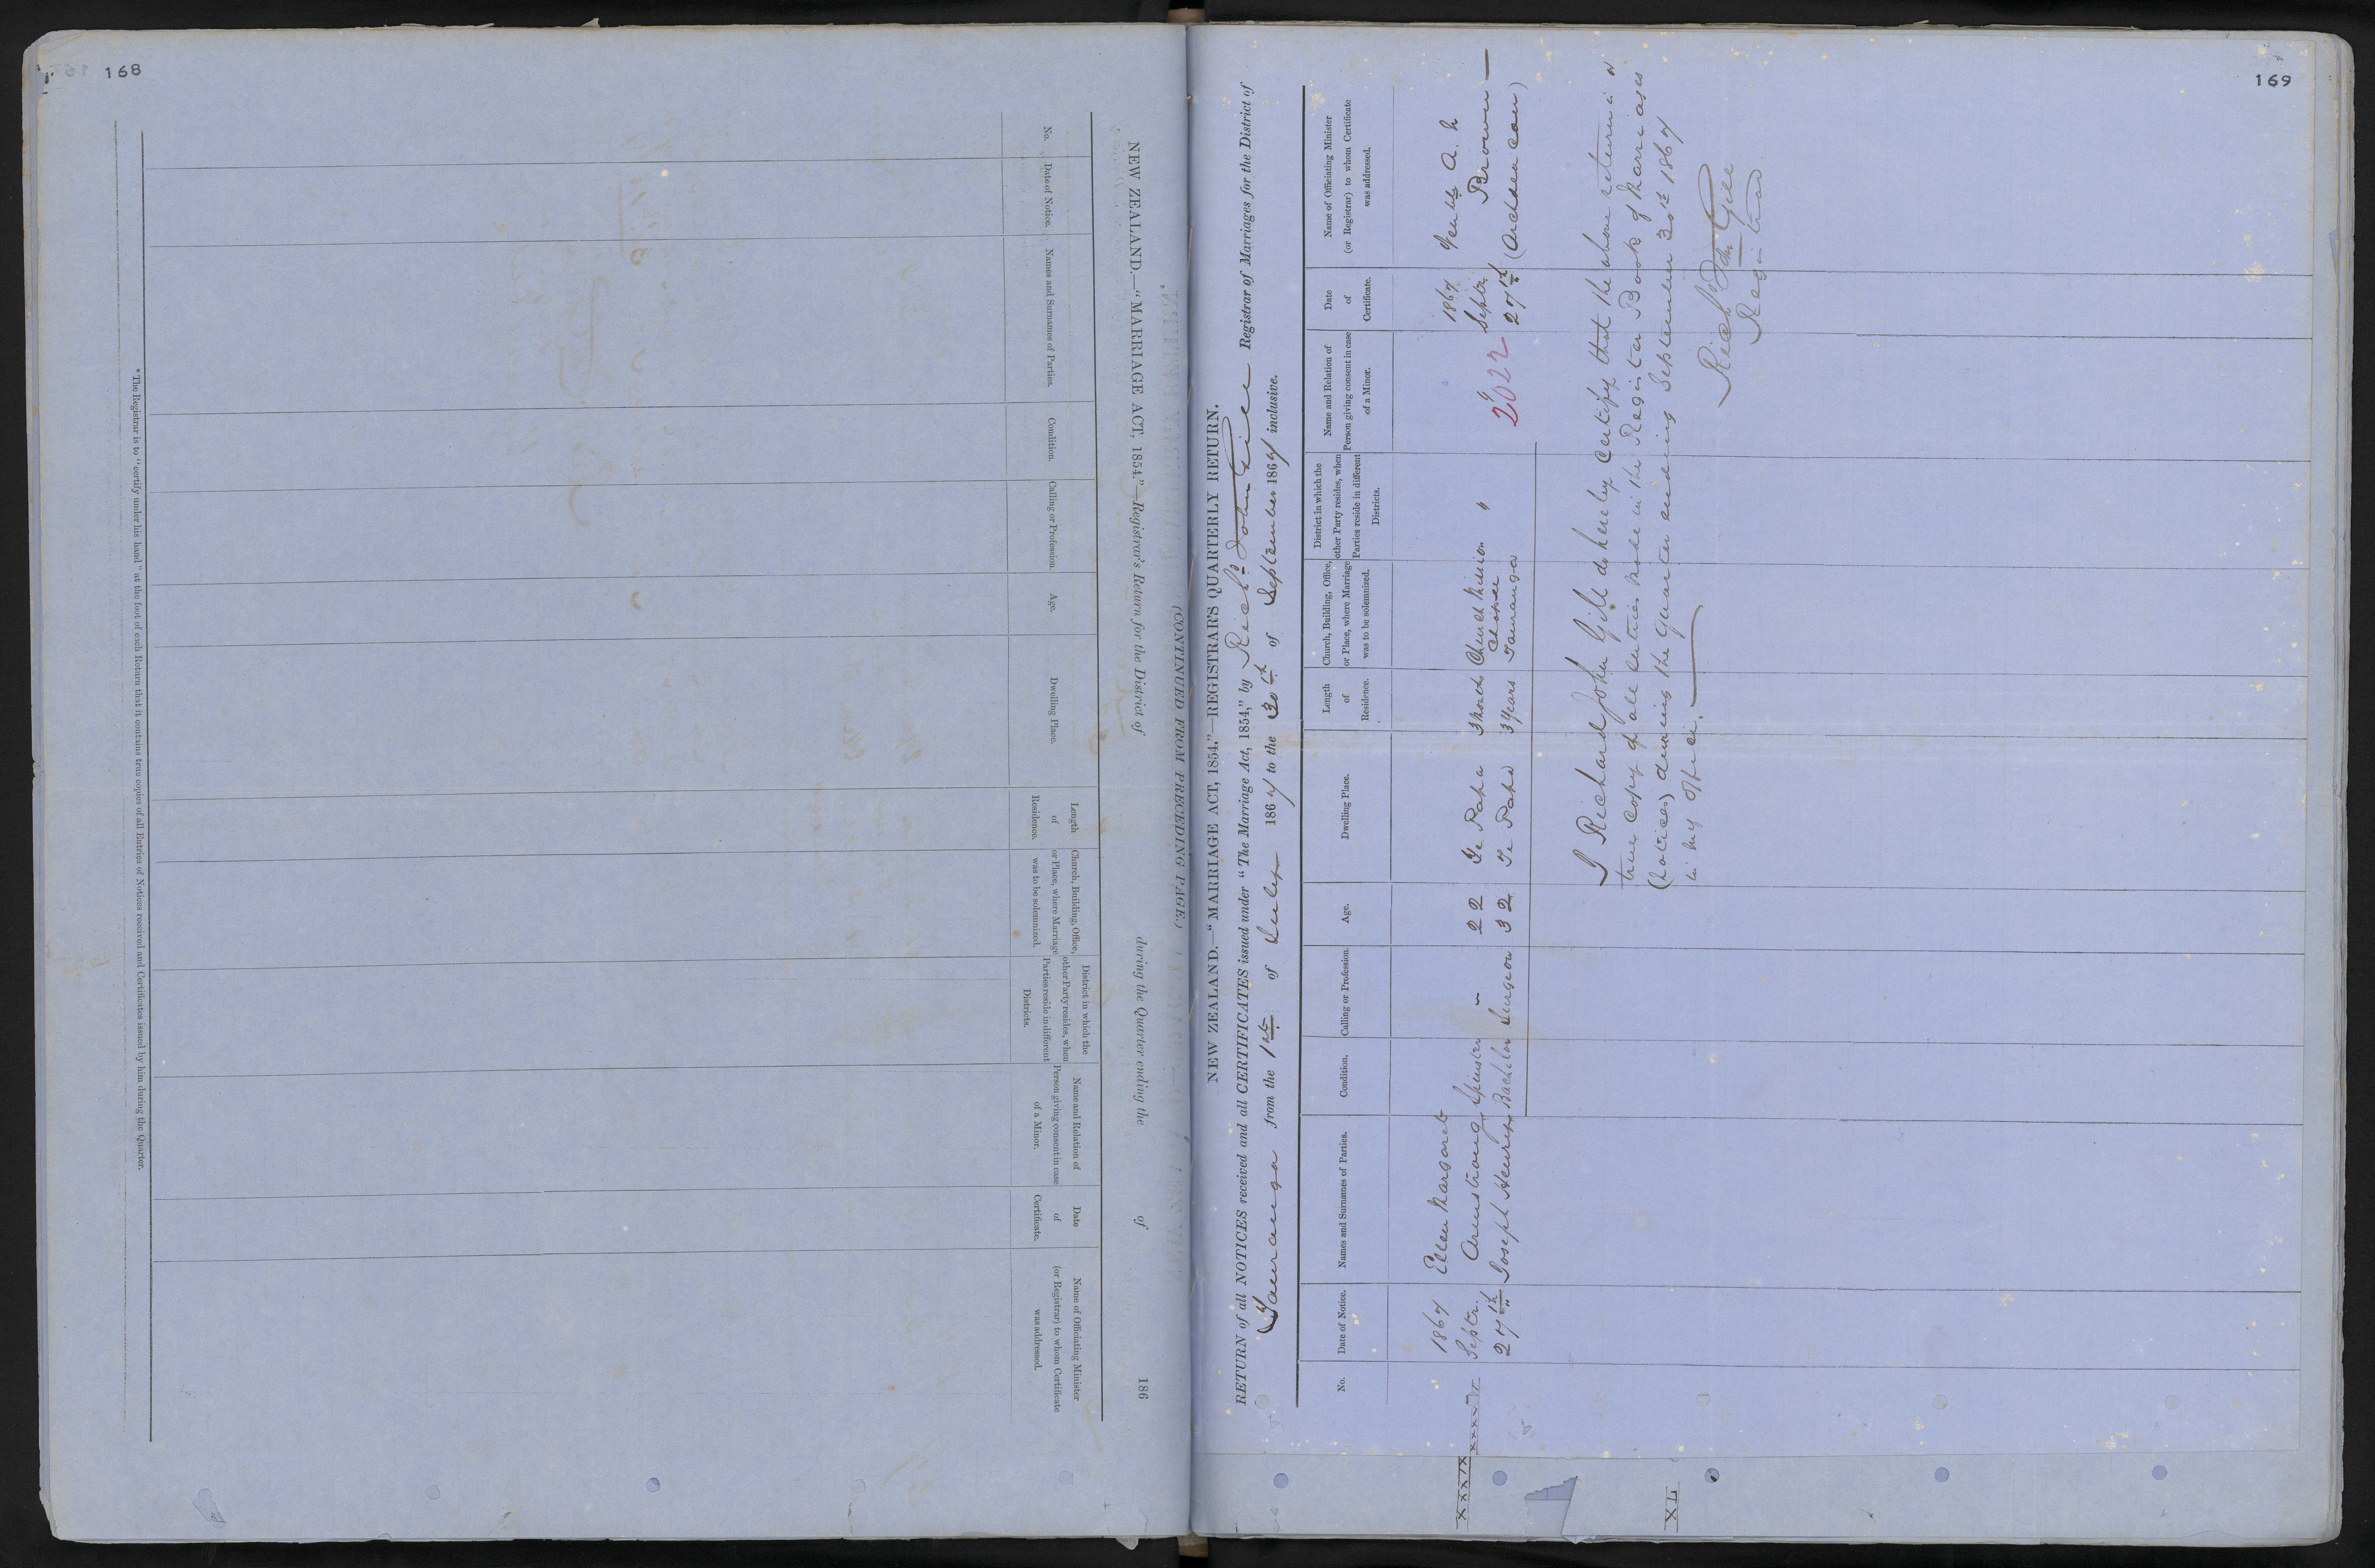 168
NEW ZEALAND.—"MARRIAGE ACT, 1854."—Registrar's Return for the District of during the Quarter ending the of 186
No.
Date of Notice.
Names and Surnames of Parties.
Condition.
Calling or Profession.
Age.
Dwelling Place.
Length
of
Residence.
Church, Building, Office,
or Place, where Marriage
was to be solemnized.
District in which the
other Party resides, when
Parties reside in different
Districts.
Name and Relation of
Person giving consent in case
of a Minor.
Date
of
Certificate.
Name of Officiating Minister
(or Registrar) to whom Certificate
was addressed.
*The Registrar is to "certify under his hand" at the foot of each Return that it contains true copies of all Entries of Notices received and Certificates issued by him during the Quarter.
(CONTINUED FROM PRECEDING PAGE.)
169
NEW ZEALAND.—"MARRIAGE ACT, 1854."—REGISTRAR'S QUARTERLY RETURN.
RETURN of all NOTICES received and all CERTIFICATES issued under "The Marriage Act, 1854," by Richd John Gill Registrar of Marriages for the District of
Tauranga from the 1st of July 1867 to the 30th of September 1867 inclusive.
No.
Date of Notice.
Names and Surnames of Parties.
Condition.
Calling or Profession.
Age.
Dwelling Place.
Length
of
Residence.
Church, Building, Office,
or Place, where Marriage
was to be solemnized.
District in which the
other Party resides, when
Parties reside in different
Districts.
Name and Relation of
Person giving consent in case
of a Minor.
Date
of
Certificate.
Name of Officiating Minister
(or Registrar) to whom Certificate
was addressed.
XXXIX
1867
Septr.
27th
Ellen Margaret
Armstrong
Joseph Henry
Spinster
Bachelor
"
Surgeon
22
32
Te Papa
Te Papa
3 Months
3 Years
Church Mission
Chapel
Tauranga
"
2022
1867
Septr.
27th
Venble A. N
Brown
(Archdeacon)
I Richard John Gill do hereby Certify that the above return is a
true copy of all entries made in the Register Book of Marriages
(Notices) during the Quarter ending September 30th 1867
in my Office.
Richd Jn Gill
Registrar
XL